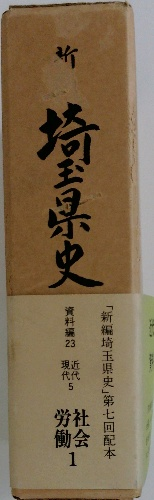 新
埼玉県史
「新編埼玉県史」第七回配本
資料編23
近代
現代5
社会
労働1